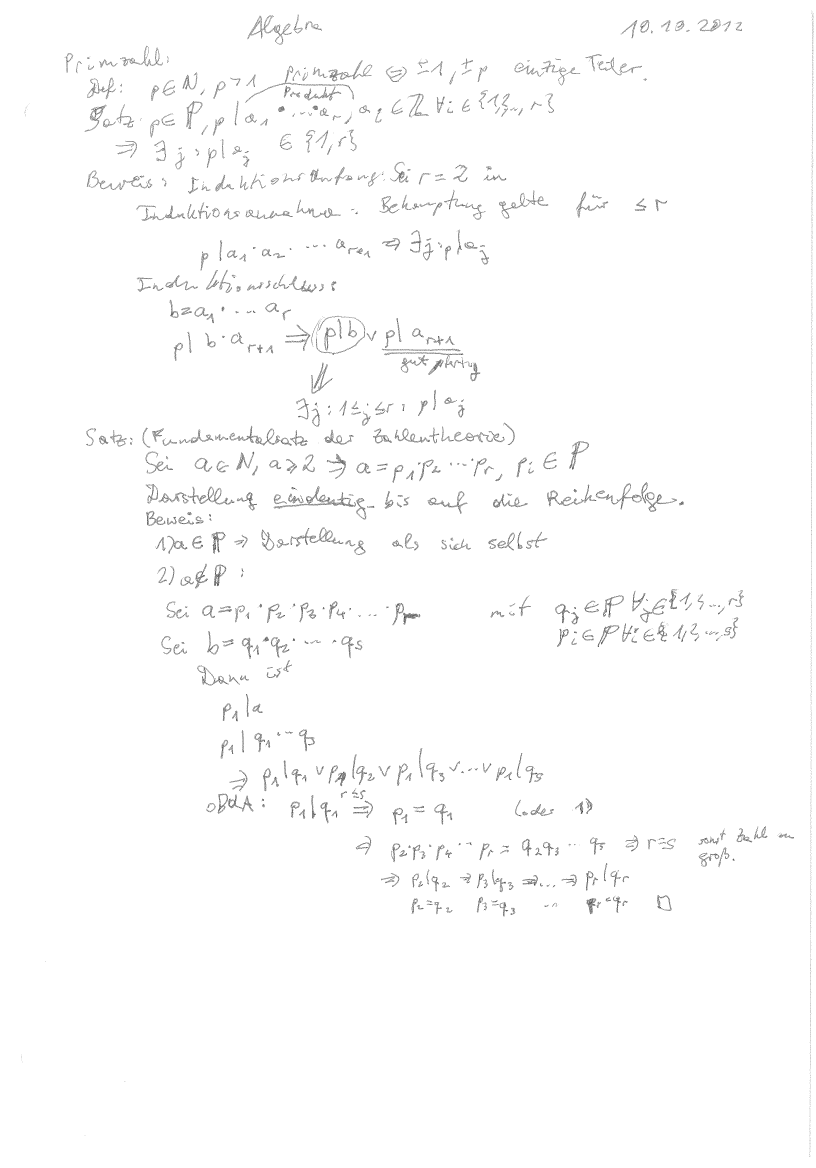 Algebra 10.10.2012
Primzahl:
Def: p∈ℕ, p>1 Primzahl ⇔ ±1, ±p einzige Teiler.
Produkt
Satz: p∈ℙ, p | a₁ · ... · aᵣ, aᵢ ∈ ℤ ∀i ∈ {1,..., r}
⇒ ∃ j : p | aⱼ ∈ {1, r}
Beweis: Induktionsanfang: Sei r = 2 in
Induktionsannahme: Behauptung gelte für ≤ r
p | a₁ · a₂ · ... aᵣ₊₁ ⇒ ∃j : p | aⱼ
Induktionsschluss:
b = a₁ · ... aᵣ
p | b · aᵣ₊₁ ⇒ p|b ∨ p | aᵣ₊₁
gut fertig
⇓
∃j : 1 ≤ j ≤ r : p | aⱼ
Satz: (Fundamentalsatz der Zahlentheorie)
Sei a ∈ ℕ, a ≥ 2 ⇒ a = p₁ · p₂ ... pᵣ, pᵢ ∈ ℙ
Darstellung eindeutig bis auf die Reihenfolge.
Beweis:
1) a ∈ ℙ ⇒ Darstellung als sich selbst
2) a ∉ ℙ :
Sei a = p₁ · p₂ · p₃ · p₄ · ... · pᵣ mit qⱼ ∈ ℙ ∀j ∈ {1, ..., r}
Sei b = q₁ · q₂ · ... · qₛ pᵢ ∈ ℙ ∀i ∈ {1, ..., s}
Dann ist
p₁ | a
p₁ | q₁ ... qₛ
⇒ p₁ | q₁ ∨ p₁ | q₂ ∨ p₁ | q₃ ∨ ... ∨ p₁ | qₛ
r ≤ s
oBdA: p₁ | q₁ ⇒ p₁ = q₁ (oder 1)
⇒ p₂ · p₃ · p₄ ... pᵣ = q₂ q₃ ... qₛ ⇒ r = s sonst Zahl zu
groß.
⇒ p₂ | q₂ ⇒ p₃ | q₃ ⇒ ... ⇒ pᵣ | qᵣ
p₂ = q₂ p₃ = q₃ ... pᵣ = qᵣ □